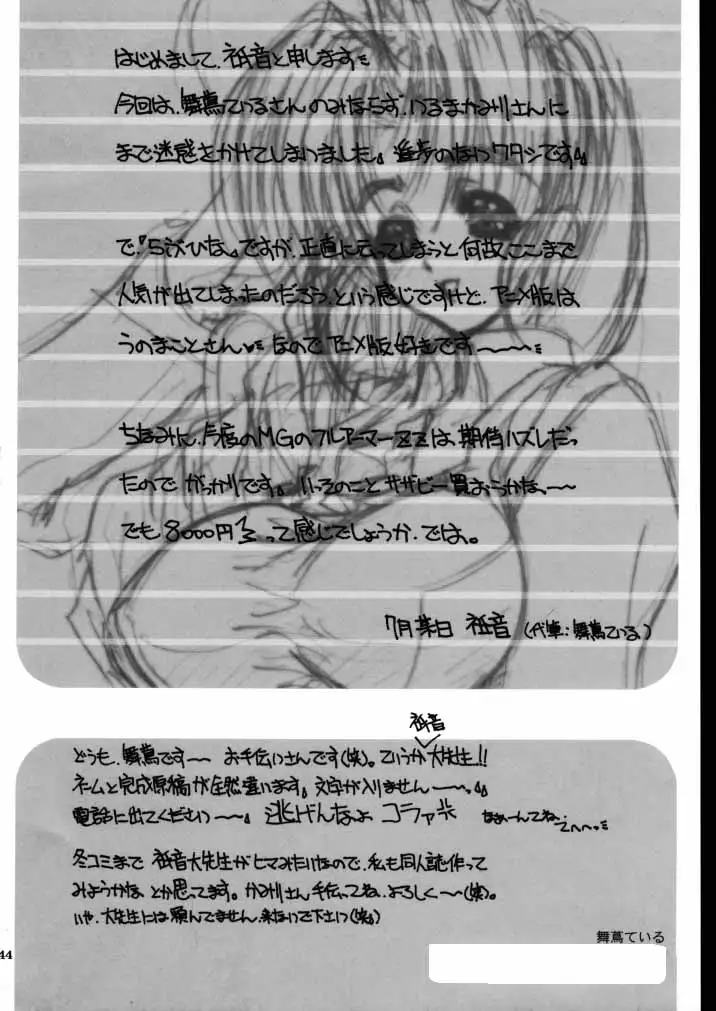 はじめまして、祇音と申します
今回は、舞蔦ているさんのみならず、いるまかみりさんに
まで迷惑をかけてしまいました。進歩のないワタシです。
で『らぶひな』ですが、正直に云ってしまうと何故、ここまで
人気が出てしまったのだろう、という感じですけど、アニメ版は
うのまことさん なのでアニメ版好きです〜〜〜
ちなみに、今度のMGのフルアーマーZZは、期待ハズしだっ
たのでがっかりです。いっそのことサザビー買おうかな、〜〜
でも8000円 って感じでしょうか、では。
7月某日 祇音(代筆:舞蔦ている)
祇音
どうも、舞蔦です〜〜 お手伝いさんです(笑)。ていうか大先生!!
ネームと完成原稿が全然違います。文字が入りません〜〜。
電話に出てください〜〜 逃げんなよ コラァ なぁーんてね、てへへっ
冬コミまで 祇音大先生がヒマみたいなので、私も同人誌作って
みようかな とか思ってます。かみりさん手伝ってね、よろしく〜〜(笑)。
いや、大先生には頼んでません、来ないで下さいっ(笑)
舞蔦ている
44